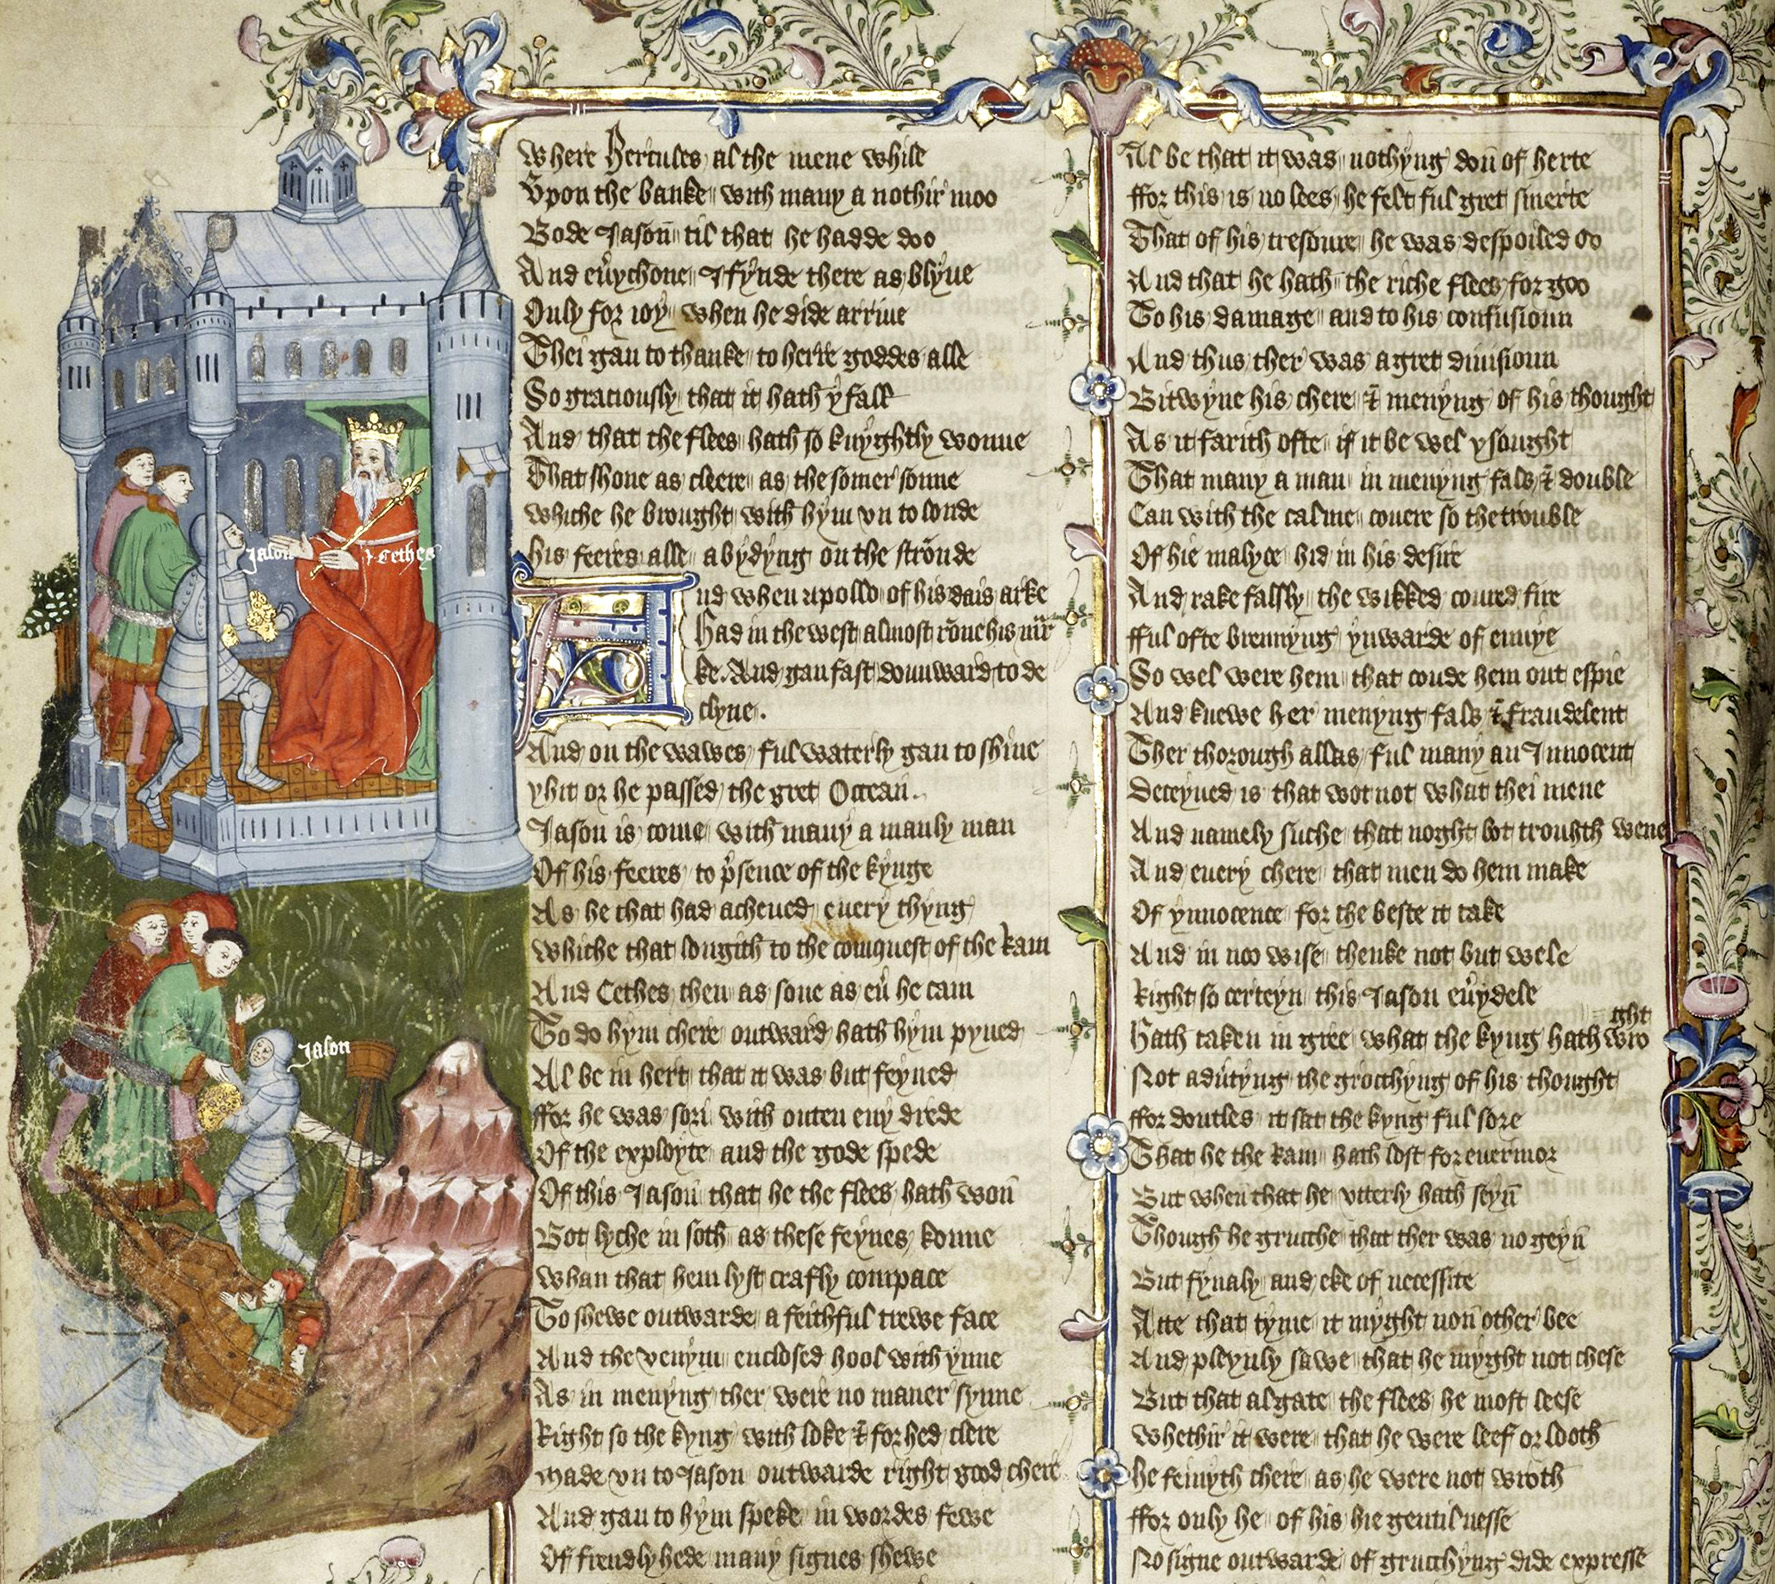 Where Hercules al the mene while
Upon the banke with many a nothir moo
Bode Jason til that he hadde doo
And eu'ychone I fynde there as blyue
Only for ioy when he dide arriue
Thei gan to thanke to herre goddes alle
So graciously that it hath y fall
And that the flees hath so knyghtly wonne
That shone as cleere as the somer sonne
Whiche he brought with hym vn to londe
his feeres alle abydyng on the stronde
And when appollo of his dais arke
Had in the west almost ronne his mer
ke And gan fast dounward to de
clyne.
And on the wawes ful waterly gan to shine
yhit or he passed the gret Occean.
Jason is come with many a manly man
Of his feeres to p'sence of the kynge
As he that had acheued euery thyng
Whiche that longith to the conquest of the Ram
And Cethes then as sone as eu' he cam
To do hym chere outward hath hym pyned
Al be in hert that it was but feyned
ffor he was sori with outen eny drede
Of the exployte and the gode spede
Of this Jason that he the flees hath won
Bot lyche in soth as these feynes konne
Whan that hem lyst crafly compace
To shewe outwarde a feithful trewe face
And the venym enclosed hool with ynne
As in menyng ther were no maner synne
Right so the kyng with loke & forhed clere
Made vn to Jason outwarde right good chere
And gan to hym speke in wordes fewe
Of frendlyhede many signes shewe
Al be that it was nothyng don of herte
ffor this is no lees he felt ful gret smerte
That of his tresoure he was despoiled so
And that he hath the riche flees for goo
To his damage and to his confusioun
And thus ther was a gret diuisioun
Bitwyne his chere & menyng of his thought
As it farith ofte if it be wel ysought
That many a man in menyng fals & double
Can with the calme couere so the trouble
Of hie malyce hid in his desire
And rake falsly the wikked coured fire
fful ofte brennyng ynwarde of enuye
So wel were hem that coude hem out espie
And knewe her menyng fals & fraudelent
Ther thorough allas ful many an Innocent
Deceyued is that wot not what thei mene
And namely suche that noght bot trouhth wene
And euery chere that men do hem make
Of ynnocence for the beste it take
And in noo wise thenke not but wele
Right so certeyn this Jason eu'ydele
Hath taken in gree what the kyng hath wro
ght
Not aduertyng the grocchyng of his thought
ffor doutles it sat the kyng ful sore
That he the Ram hath lost for euermor
But when that he vtterly hath seyn
Though he grucche that ther was no geyn
But fynaly and eke of necessite
Atte that tyme it myght non other bee
And pleynly sawe that he myght not chese
But that algate the flees he most leese
Whethir it were that he were leef or looth
he feinyth chere as he were not wroth
ffor only he of his hie gentilnesse
No signe outwarde of grucchyng dide expresse
Jason
Cethes
Jason